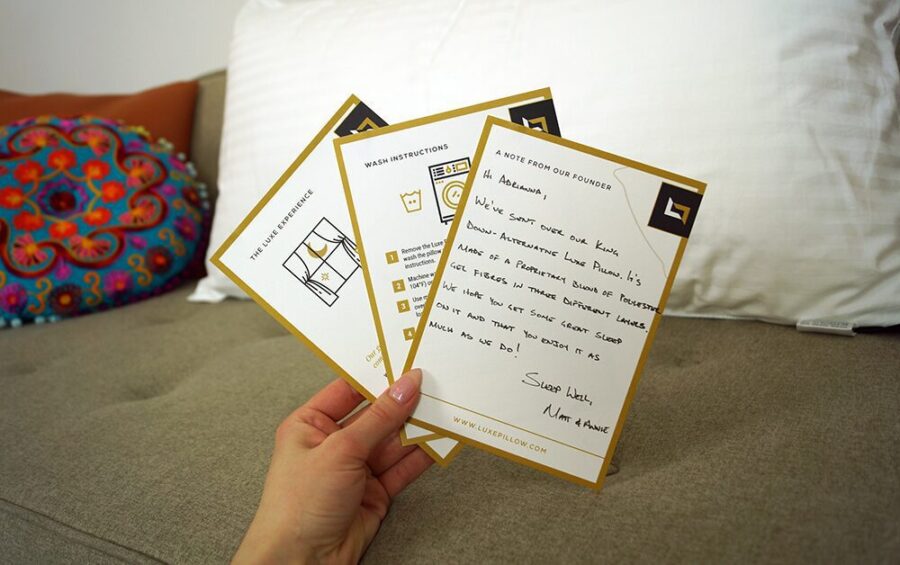 THE LUXE EXPERIENCE
WASH INSTRUCTIONS
1 Remove the Luxe
wash the pillow
instructions.
2 Machine
104°F) or
3 Use
4
A NOTE FROM OUR FOUNDER
HI ADRIANNA,
WE'VE SENT OVER OUR KING
DOWN-ALTERNATIVE LUXE PILLOW. IT'S
MADE OF A PROPRIETARY BLEND OF POLYESTER
GEL FIBRES IN THREE DIFFERENT LAYERS.
WE HOPE YOU GET SOME GREAT SLEEP
ON IT AND THAT YOU ENJOY IT AS
MUCH AS WE DO!
SLEEP WELL,
MATT & ANNIE
WWW.LUXEPILLOW.COM